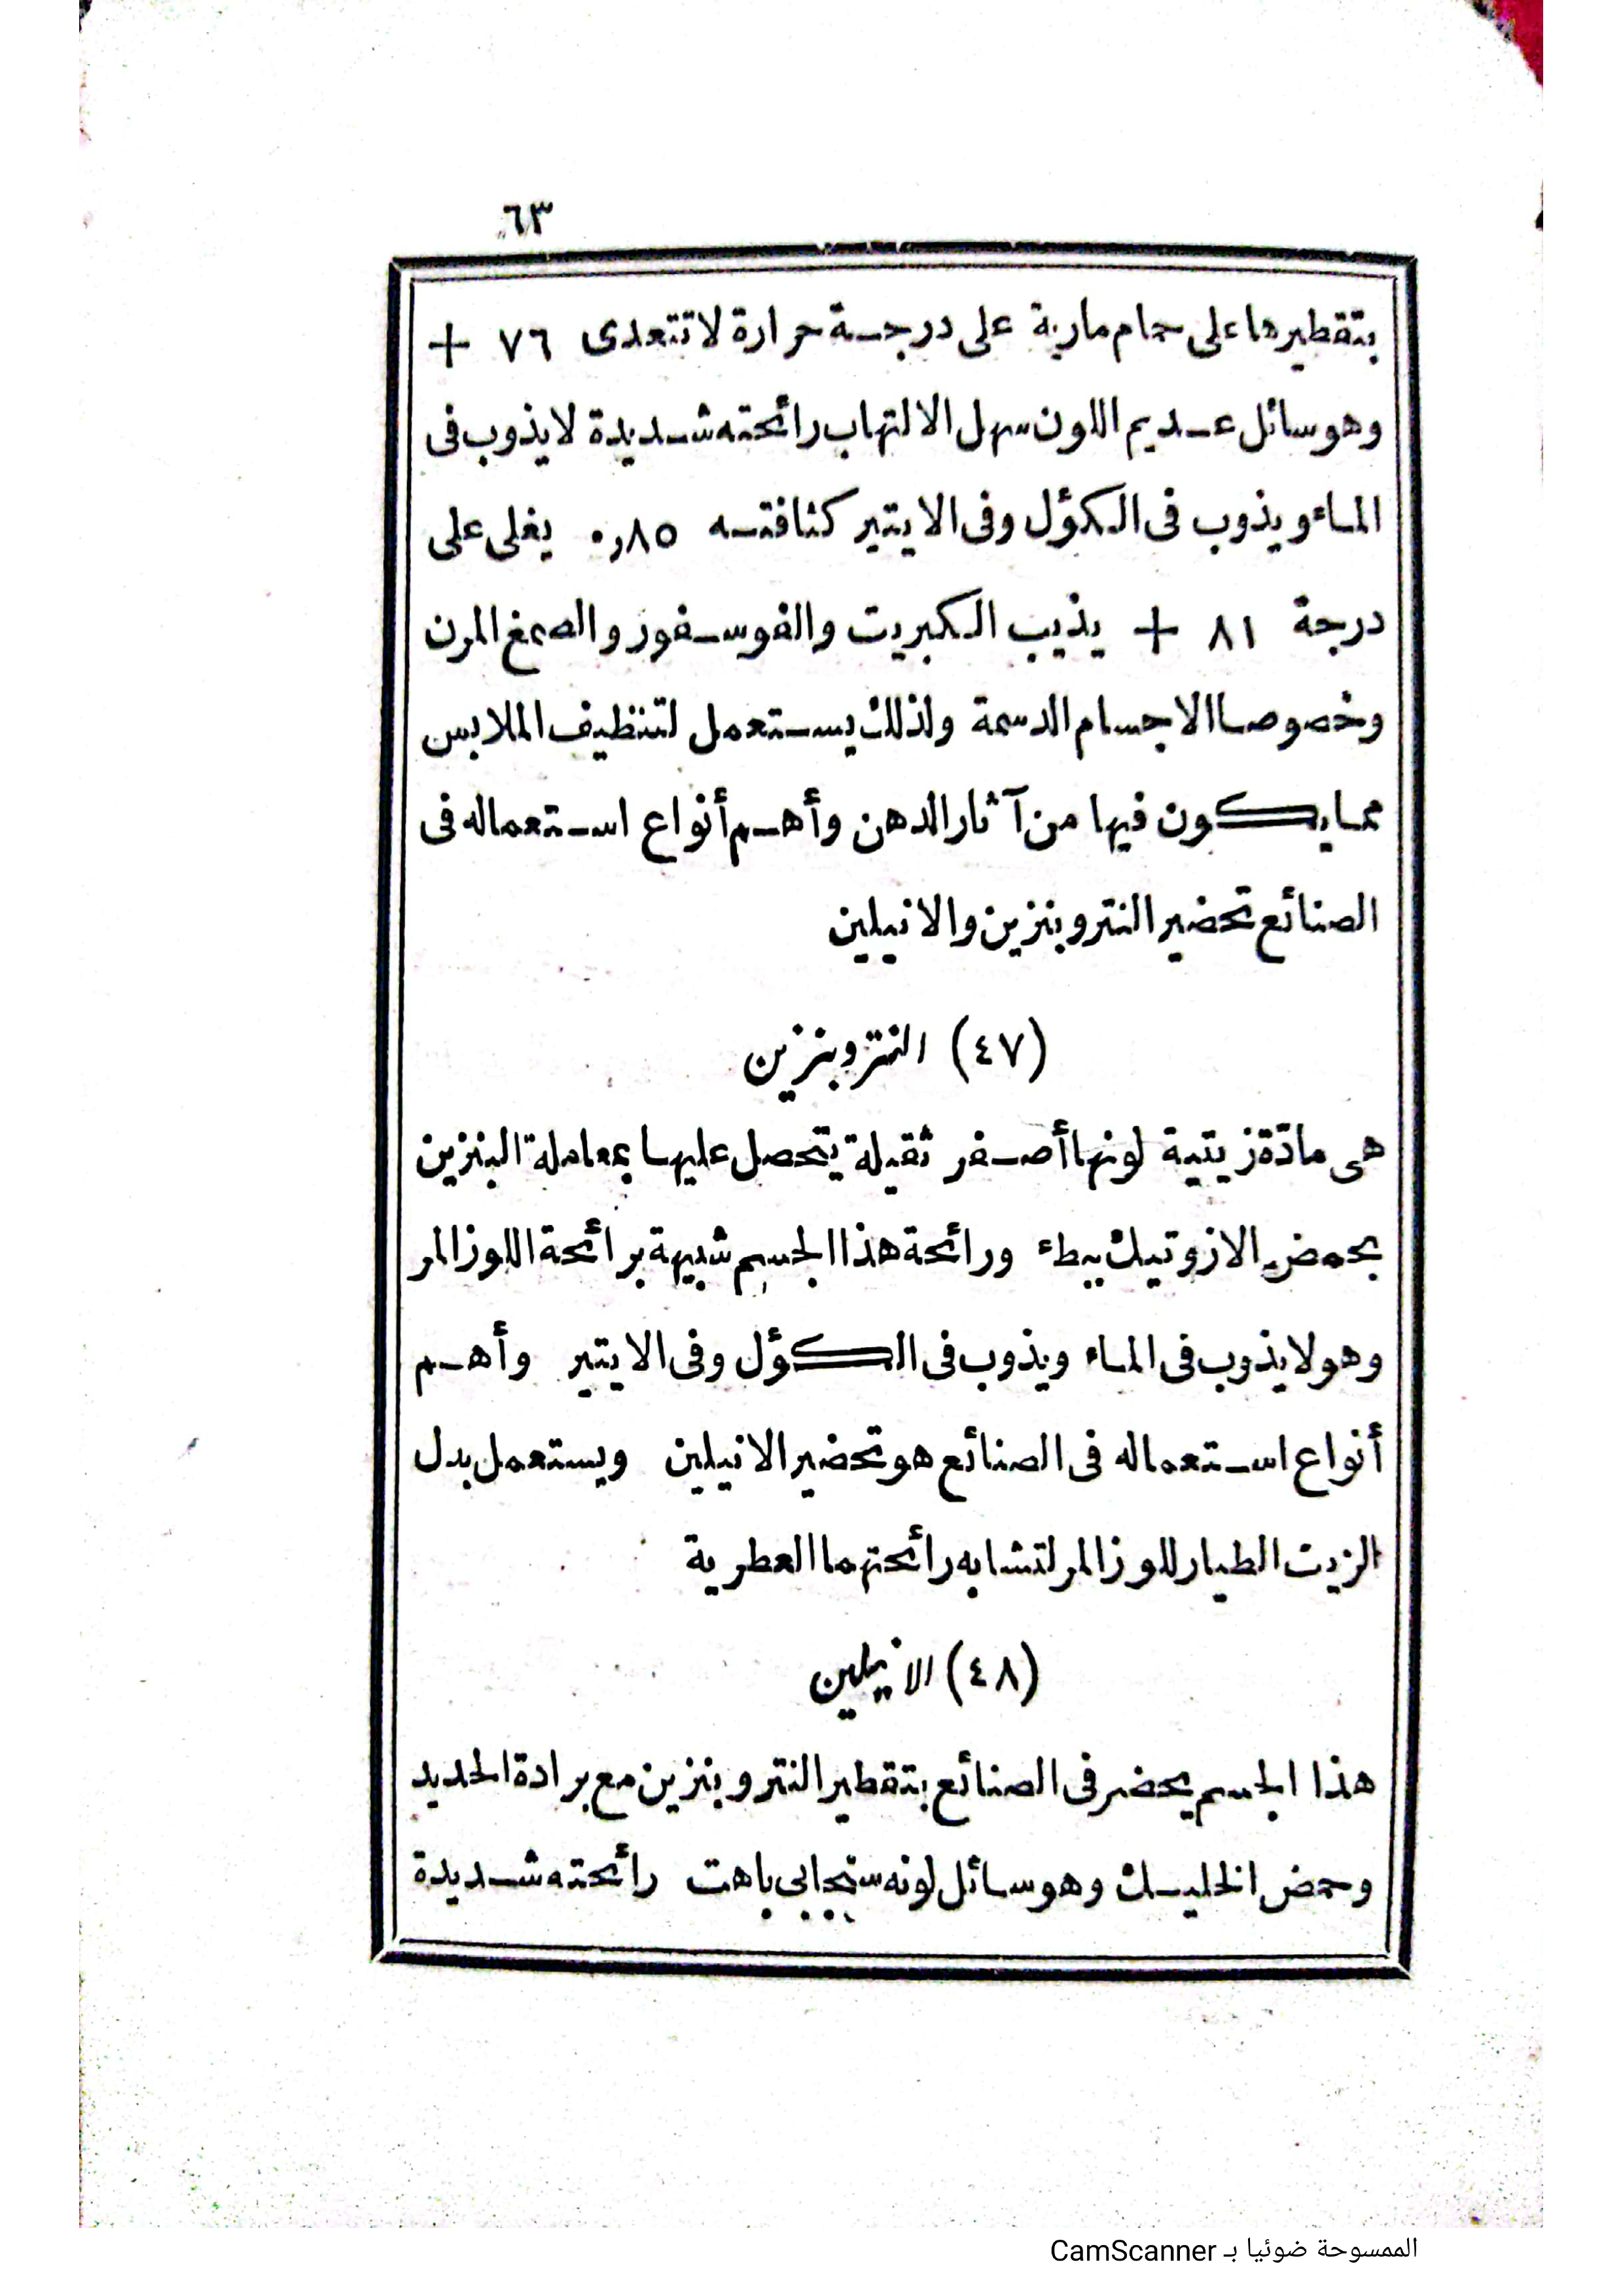 ٦٣
بتقطيرها على حمام مارية على درجة حرارة لا تتعدى ٧٦ +
وهو سائل عديم اللون سهل الالتهاب رائحته شديدة لا يذوب فى
الماء ويذوب فى الكؤل وفى الايتير كثافته ٠٫٨٥ يغلى على
درجة ٨١ + يذيب الكبريت والفوسفور والصمغ المرن
وخصوصا الاجسام الدسمة ولذلك يستعمل لتنظيف الملابس
مما يكون فيها من آثار الدهن وأهم أنواع استعماله فى
الصنائع تحضير النتروبنزين والانيلين
(٤٧) النتروبنزين
هى مادّة زيتية لونها أصفر ثقيلة يتحصل عليها بمعاملة البنزين
بحمض الازوتيك ببطء ورائحة هذا الجسم شبيهة برائحة اللوز المر
وهو لا يذوب فى الماء ويذوب فى الكؤل وفى الايتير وأهم
أنواع استعماله فى الصنائع هو تحضير الانيلين ويستعمل بدل
الزيت الطيار للوز المر لتشابه رائحتهما العطرية
(٤٨) الانيلين
هذا الجسم يحضر فى الصنائع بتقطير النتروبنزين مع برادة الحديد
وحمض الخليك وهو سائل لونه سنجابى باهت رائحته شديدة
الممسوحة ضوئيا بـ CamScanner